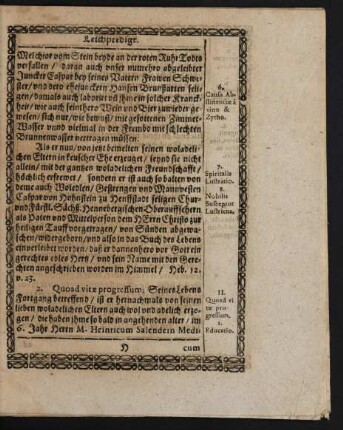 Leichpredigt.
Melchior vom Stein beyde an der roten Ruhr Todts
verfallen / daran auch vnser nunmehro abgeleibter
Juncker Caspar bey seines Vatern Frawen Schwe-
ster / vnd dero ehejunckern Hansen Brunstatten selì-
gen / damals auch laborirt vñ jhme in solcher Kranck-
heit / wie auch seinthero Wein vnd Bier zuwider ge-
wesen / sich nur / wie bewust / mit gesottenen Zimmet-
Wasser vnnd vielmal in der Frembd mit schlechten
Brunnenwasser vertragen müssen.
6.
Causa Ab-
stinentiæ à
vino &
Zytho.
Als er nun / von jetzt bemelten seinen woladeli-
chen Eltern in keuscher Ehe erzeuget / seynd sie nicht
allein / mit der gantzen woladelichen Freundschafft /
höchlich erfrewet / sondern er ist auch so balten von
deme auch Woledlen / Gestrengen vnd Manvesten
Caspar von Hanstein zu Henffstädt seliger Chur-
vnd Fürstl. Sächß. Hennebergischen Oberauffsehern
als Paten vnd Mittelperson dem Herrn Christo zur
heiligen Tauff vorgetragen / von Sünden abgewa-
schen / widergeborn / vnd also in das Buch des Lebens
einverleibet worden / daß er dannenhero vor Gott ein
gerechtes edles Hertz / vnd sein Name mit den Gere-
chten angeschrieben worden im Himmel / Heb. 12.
v. 23.
7.
Spiritalis
Lustratio.
8.
Nobilis
Susceptor
Lustricus.
2. Quoad vitæ progressum; Seines Lebens
Fortgang betreffend / ist er hernachmals von seinen
lieben woladelichen Eltern auch wol vnd adelich erzo-
gen / die haben jhme so bald in angehenden alter / im
6. Jahr Herrn M. Heinricum Salendern Medi-
II.
Quoad vi-
tæ pro-
gressum.
1.
Educatio.
H
cum